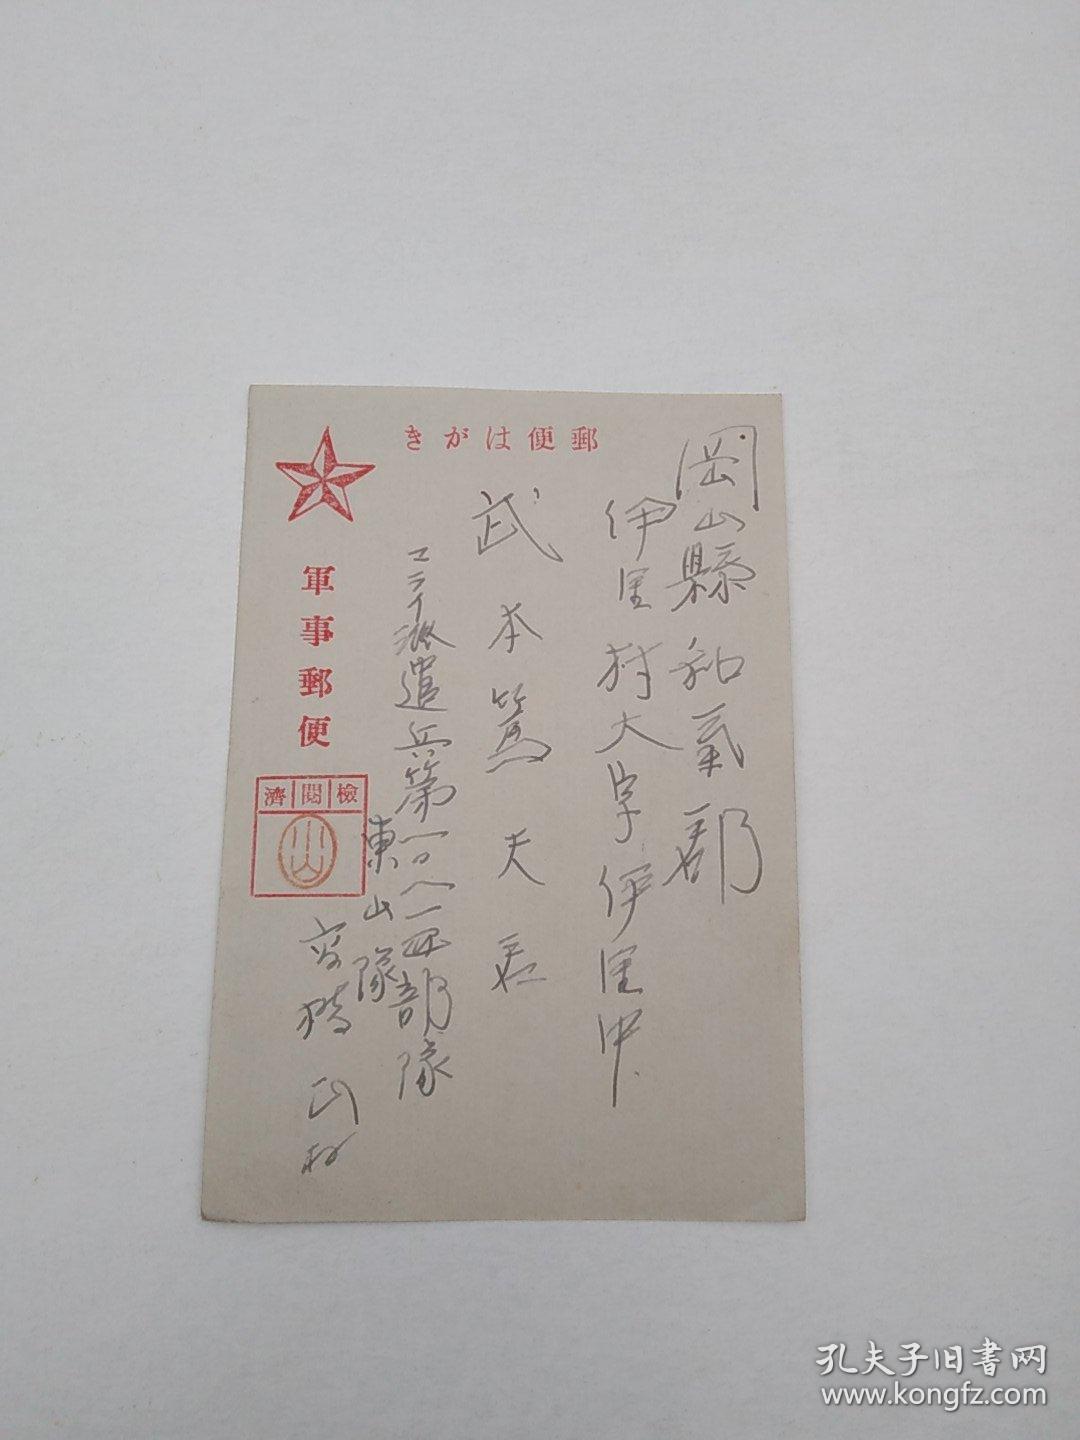 郵便はがき
岡山縣和氣郡
伊里村大字伊里中
武本篤夫君
マライ派遣兵第一〇八一四部隊
東山隊
軍事郵便
檢閲濟
孔夫子旧書网
www.kongfz.com